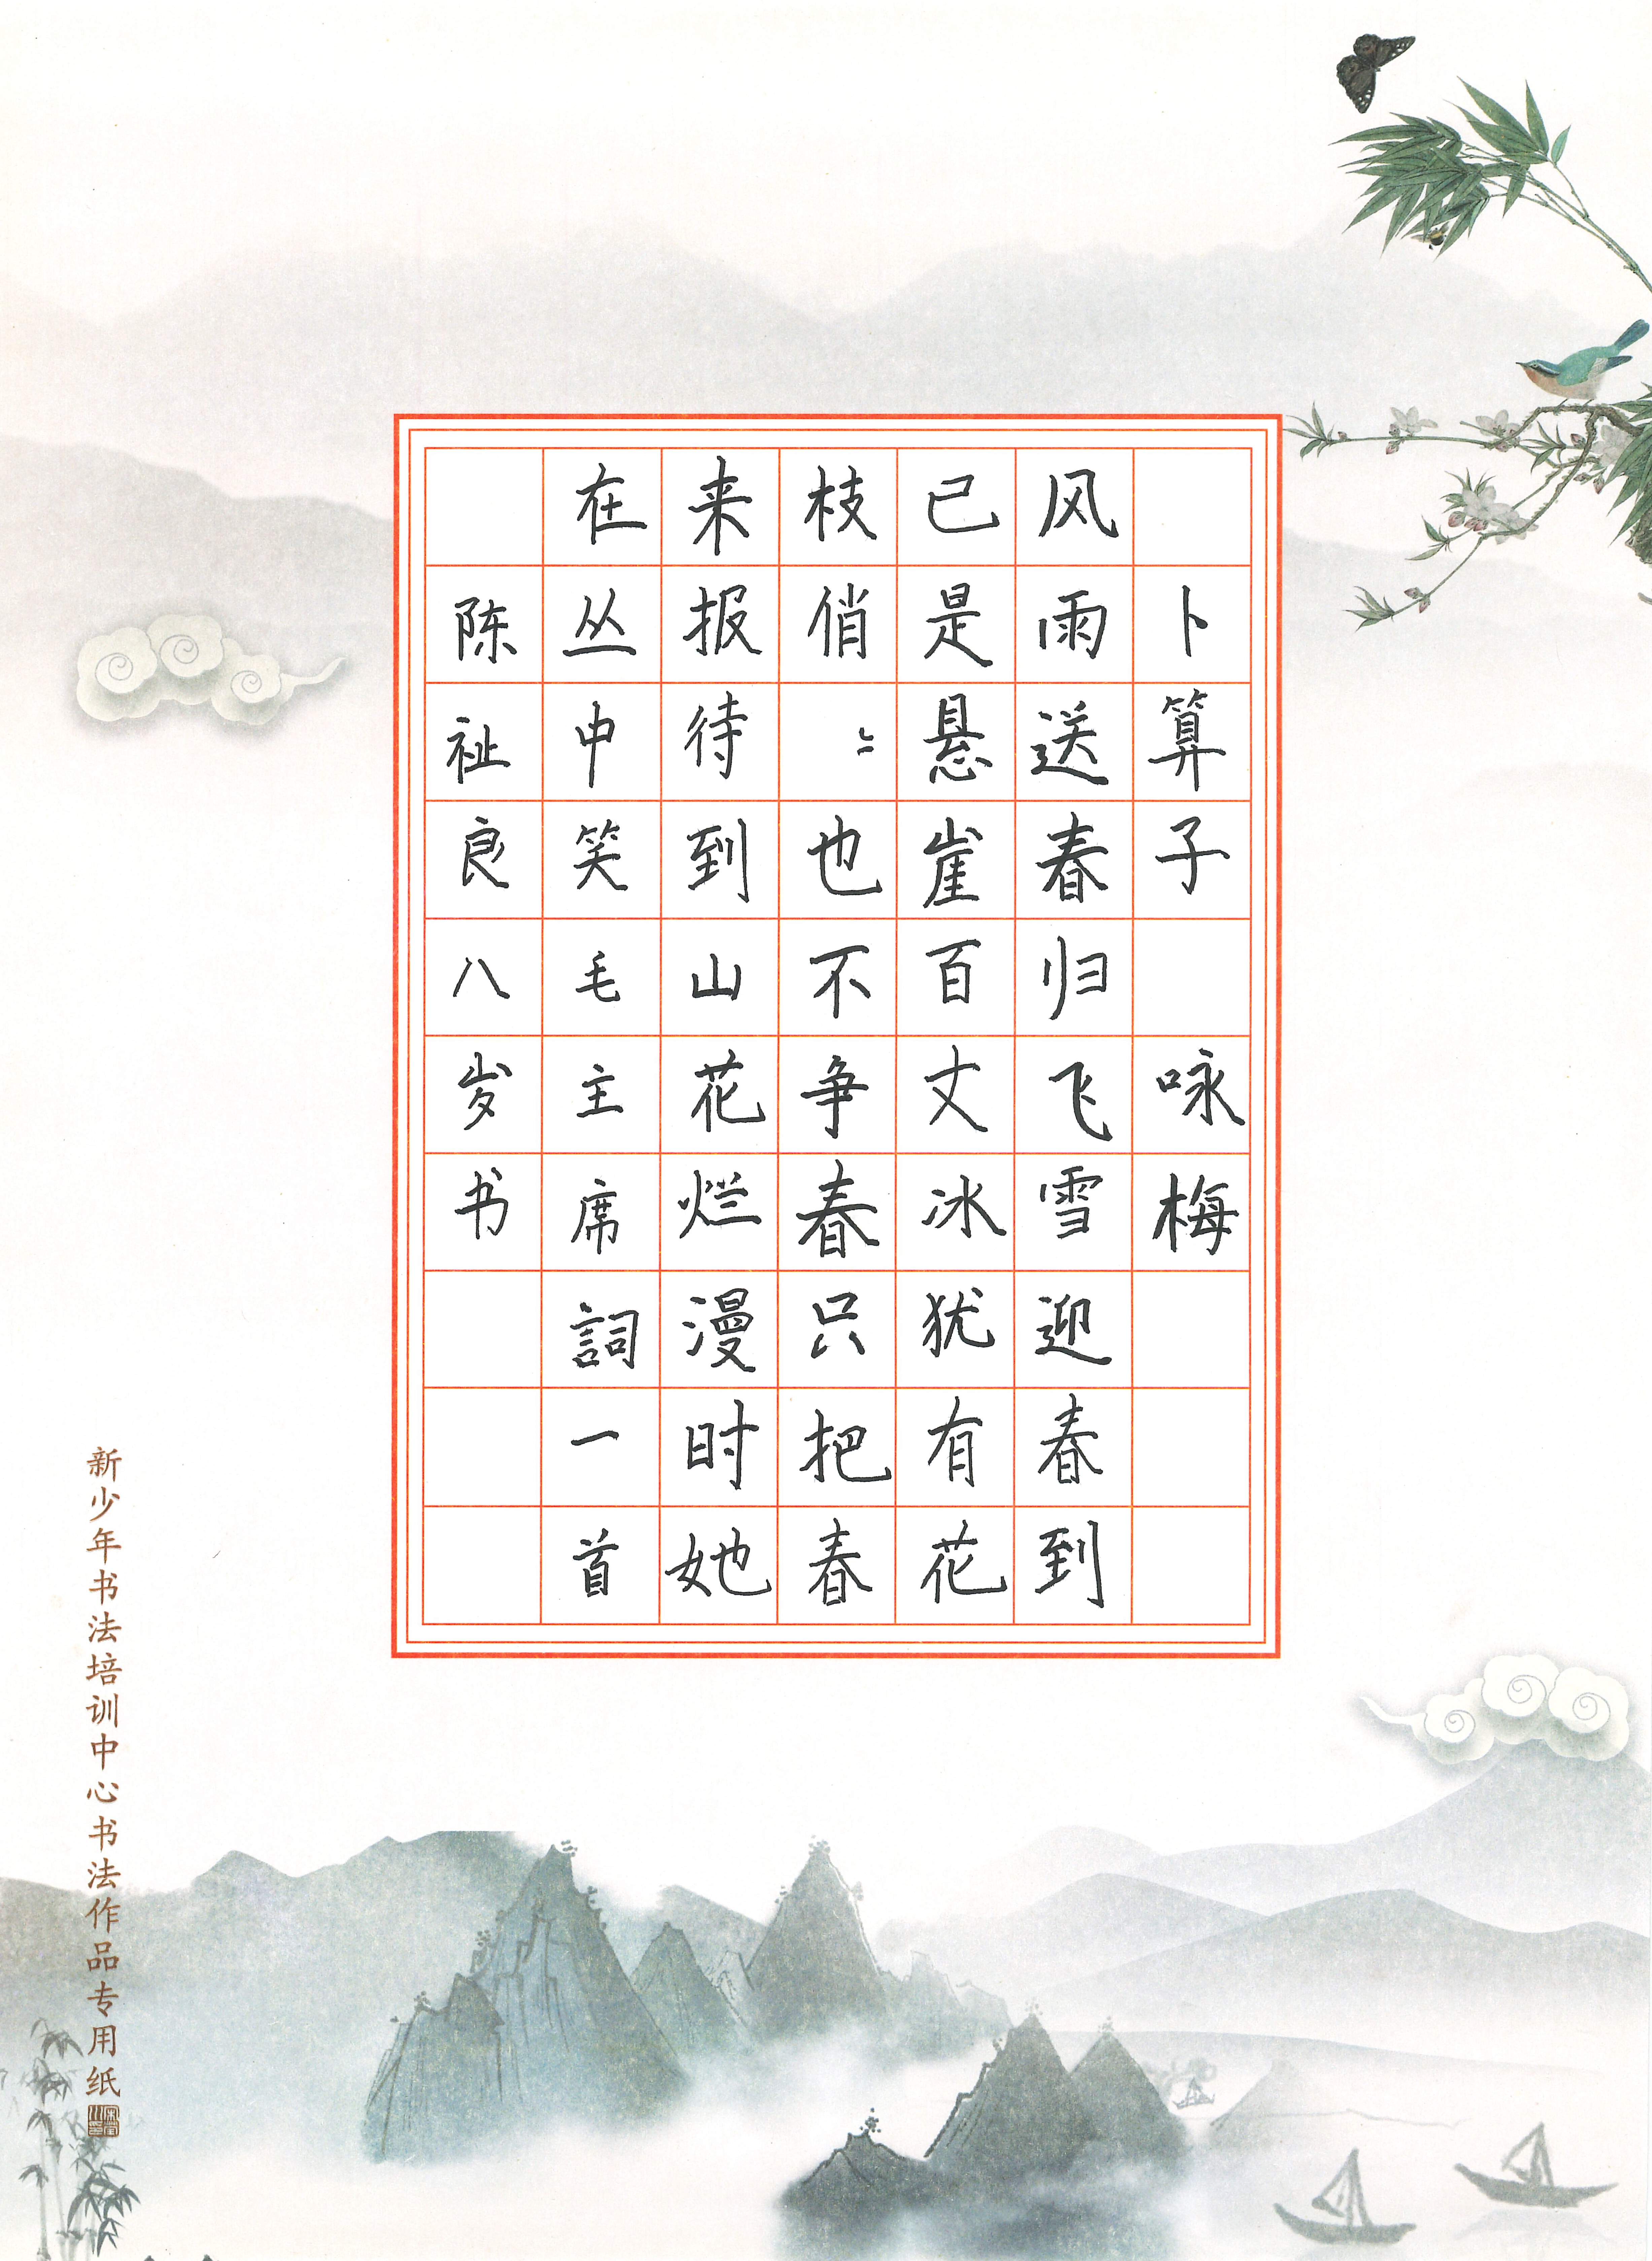 卜算子 咏梅
风雨送春归飞雪迎春到
已是悬崖百丈冰犹有花
枝俏〻也不争春只把春
来报待到山花烂漫时她
在丛中笑毛主席詞一首
陈祉良八岁书
新少年书法培训中心书法作品专用纸